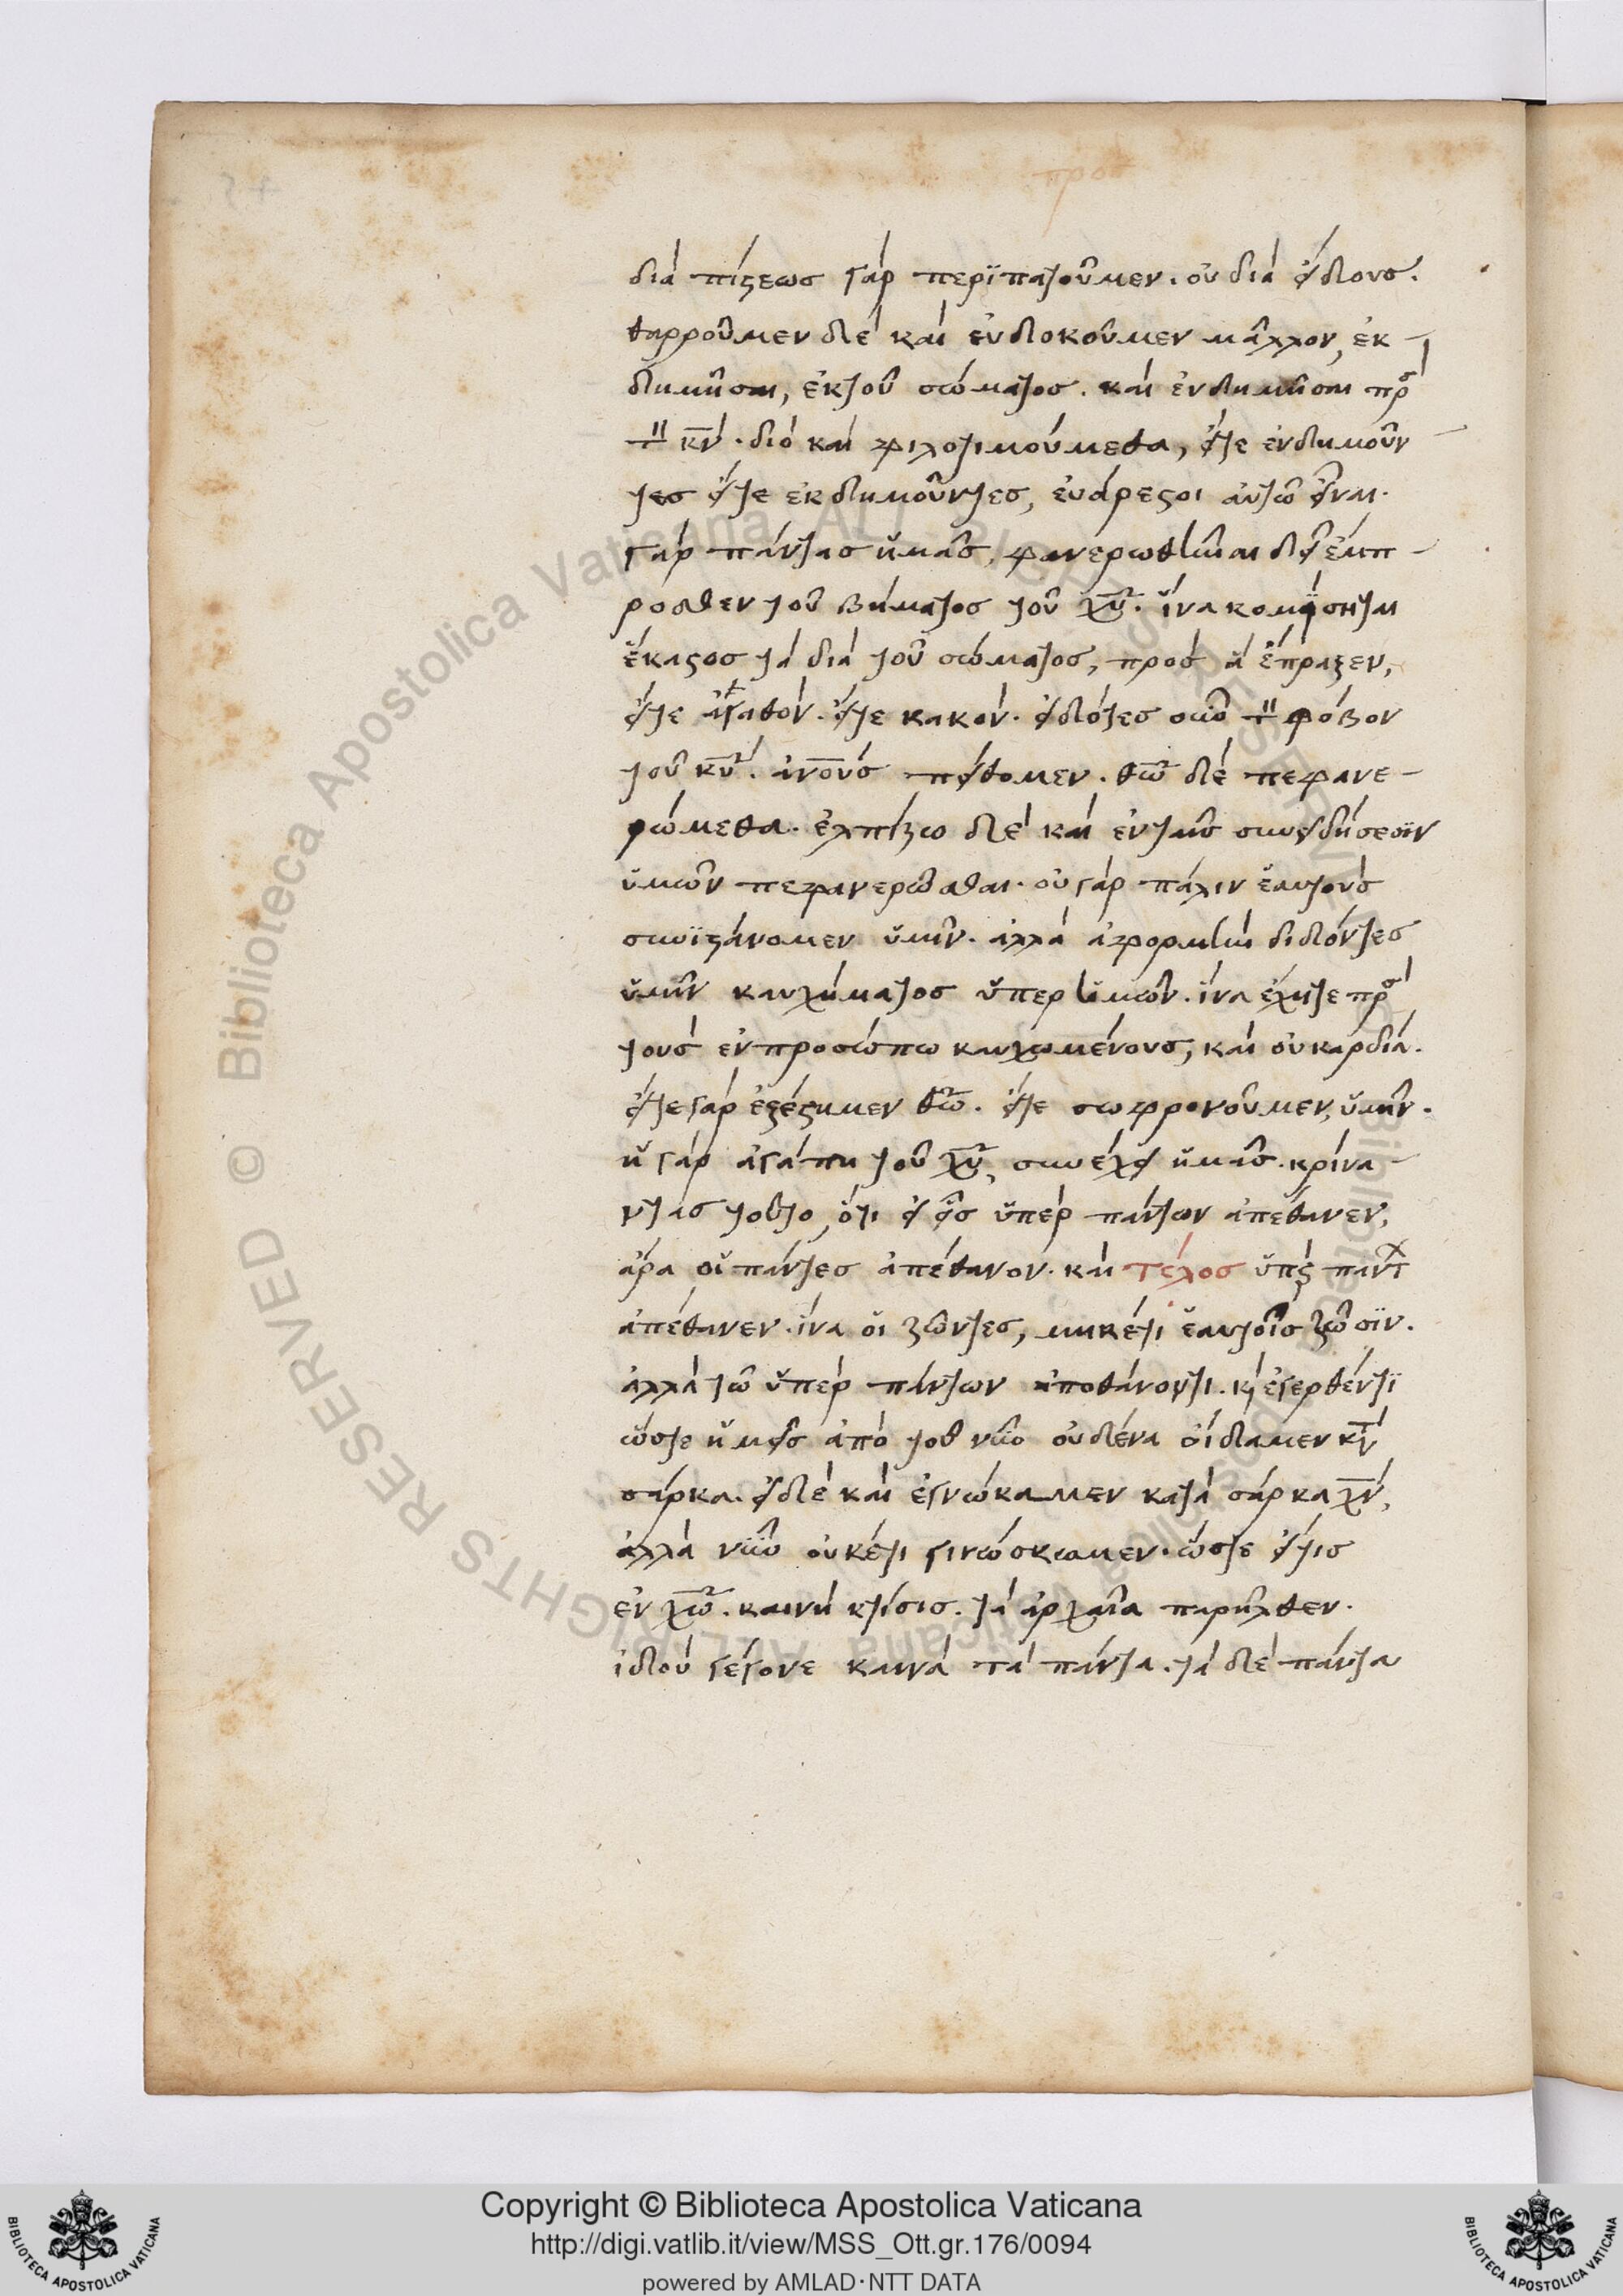 προσ
διὰ πίστεωσ γὰρ περϊπατοῦμεν. οὐ διὰ εἴδουσ.
θαρροῦμεν δὲ καὶ εὐδοκοῦμεν μᾶλλον, ἐκ-
δημῆσαι, ἐκτοῦ σώματοσ. καὶ ἐνδημῆσαι πρὸ
τὸν κν. διὸ καὶ φιλοτιμούμεθα, εἴτε ἐνδημοῦν
τεσ εἴτε ἐκδημοῦντεσ, εὐάρεστοι αὐτῶ εἶναι.
γὰρ πάντασ ἡμᾶσ, φανερωθῆναι δεῖ ἔμπ-
ροσθεν τοῦ βήματοσ τοῦ χυ. ἵνα κομίσηται
ἕκαστοσ τὰ διὰ τοῦ σώματοσ, πρὸσ ἃ ἔπραξεν,
εἴτε ἀγαθόν. εἴτε κακόν. εἰδότεσ οὖν τὸν φόβον
τοῦ κυ. ἀνουσ πείθομεν. θω δὲ πεφανε-
ρώμεθα. ἐλπίζω δὲ καὶ ἐνταῖσ συνειδήσεσϊν
ὑμῶν πεφανερῶσθαι. οὐ γὰρ πάλιν ἑαυτοὺσ
συνϊστάνομεν ὑμῖν. ἀλλὰ ἀφορμὴν διδόντεσ
ὑμῖν καυχήματοσ ὑπερ ἡμῶν. ἵνα ἔχητε πρὸ
τοὺσ ἐν προσώπω καυχωμένουσ, καὶ οὐ καρδία.
εἴτε γὰρ ἐξέστημεν θω. εἴτε σωφρονοῦμεν, ὑμῖν.
ἡ γὰρ ἀγάπη τοῦ χυ, συνέχει ἡμᾶσ. κρίνα-
ντασ τοῦτο, ὅτι εἰ εἷσ ὑπὲρ πάντων ἀπέθανεν,
ἄρα οἱ πάντεσ ἀπέθανον. καὶ τέλοσ ὑπὲρ παντ
ἀπέθανεν. ἵνα οἱ ζῶντεσ, μηκέτι ἑαυτοῖσ ζῶσϊν.
ἀλλὰ τῶ ὑπὲρ πάντων ἀποθάνοντι. κὶ ἐγερθέντϊ
ὥστε ἡμεῖσ ἀπὸ τοῦ νῦν οὐδένα οἴδαμεν κτ
σάρκα. εἰ δὲ καὶ ἐγνώκαμεν κατὰ σάρκα χν,
ἀλλὰ νῦν οὐκέτι γινώσκωμεν. ὥστε εἴτισ
ἐν χω. καινὴ κτίσισ. τὰ ἀρχαῖα παρῆλθεν.
ἰδοὺ γέγονε καινὰ τὰ πάντα. τὰ δὲ πάντα
© Biblioteca Apostolica Vaticana ALL RIGHTS RESERVED
Copyright © Biblioteca Apostolica Vaticana
http://digi.vatlib.it/view/MSS_Ott.gr.176/0094
powered by AMLAD·NTT DATA
BIBLIOTECA APOSTOLICA VATICANA
BIBLIOTECA APOSTOLICA VATICANA